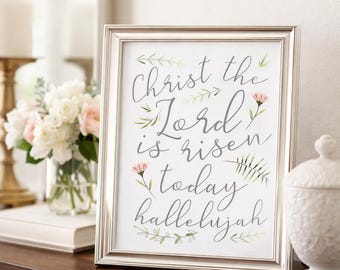 Christ the
Lord
is risen
today
hallelujah